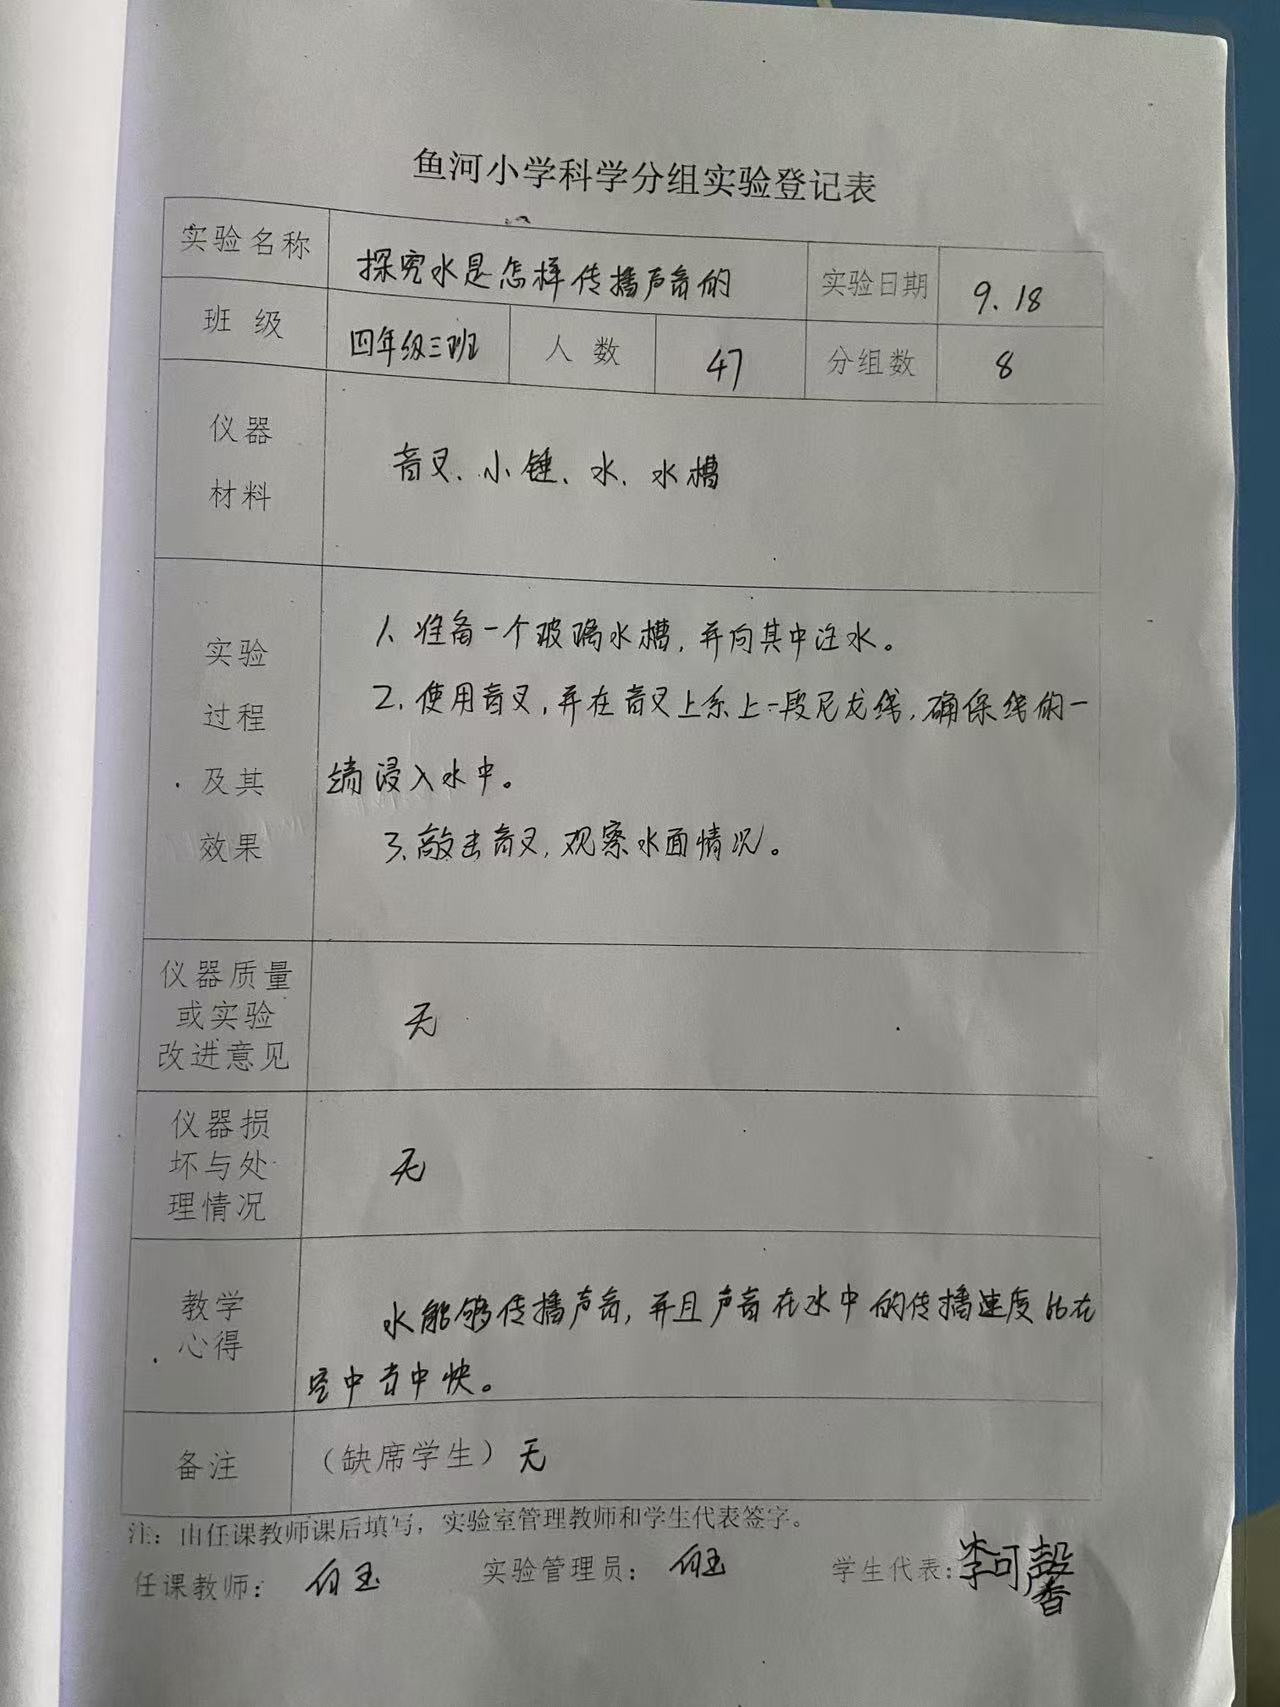 鱼河小学科学分组实验登记表
实验名称 探究水是怎样传播声音的 实验日期 9.18
班级 四年级三班 人数 47 分组数 8
仪器
材料
音叉、小锤、水、水槽
实验
过程
及其
效果
1、准备一个玻璃水槽,并向其中注水。
2、使用音叉,并在音叉上系上一段尼龙线,确保线的一
端浸入水中。
3、敲击音叉,观察水面情况。
仪器质量
或实验
改进意见
无
仪器损
坏与处
理情况
无
教学
心得
水能够传播声音,并且声音在水中的传播速度比在
空中当中快。
备注 (缺席学生) 无
注:由任课教师课后填写,实验室管理教师和学生代表签字。
任课教师: 白玉 实验管理员: 白玉 学生代表: 李可馨